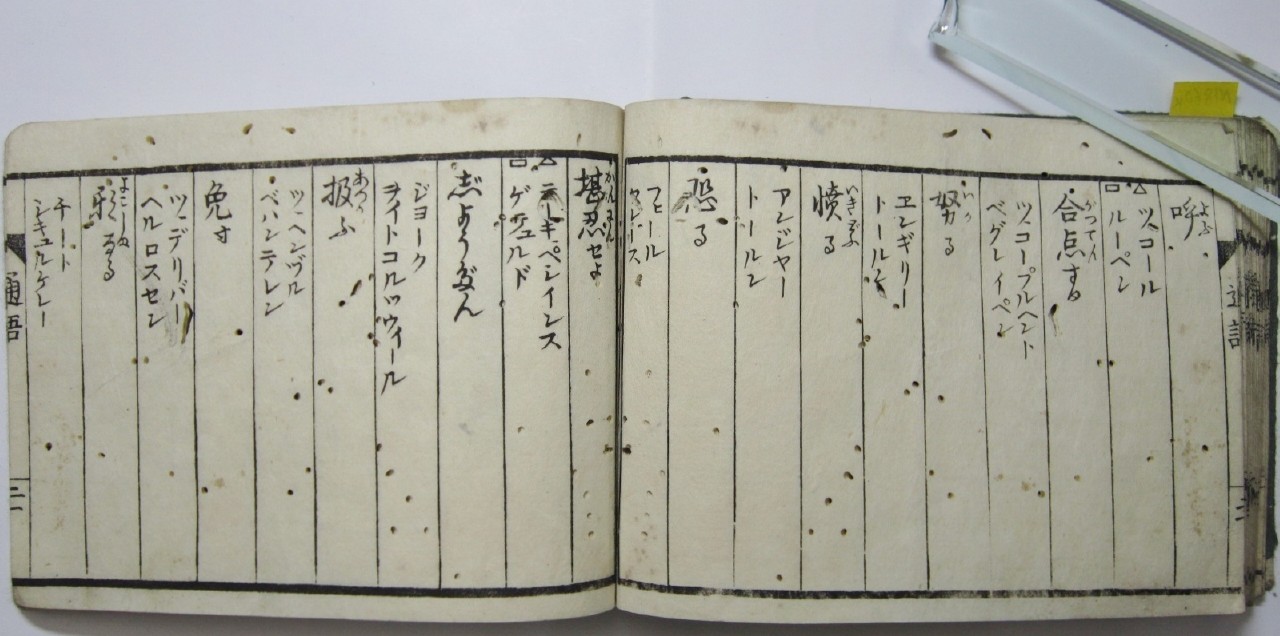 呼ぶ
△ ツ、コール
□ ルーペン
合点する
がつてん
ツ、コープルヘント
ベグレイペン
怒る
いか
ヱンギリー
トールン
憤る
いきどふ
アンジヤー
トールン
恐る
フヒール
堪忍せよ
かんにん
△ ニートギペンインス
□ ゲヂュルド
じようだん
ジョーク
ヲイトコルツウィール
扱ふ
あつか
ツ、ヘンヅル
ベハンテレン
免す
ツ、デリバー
ヘルロスセン
よこしま
なる
チート
シキュルケレー
通語
二